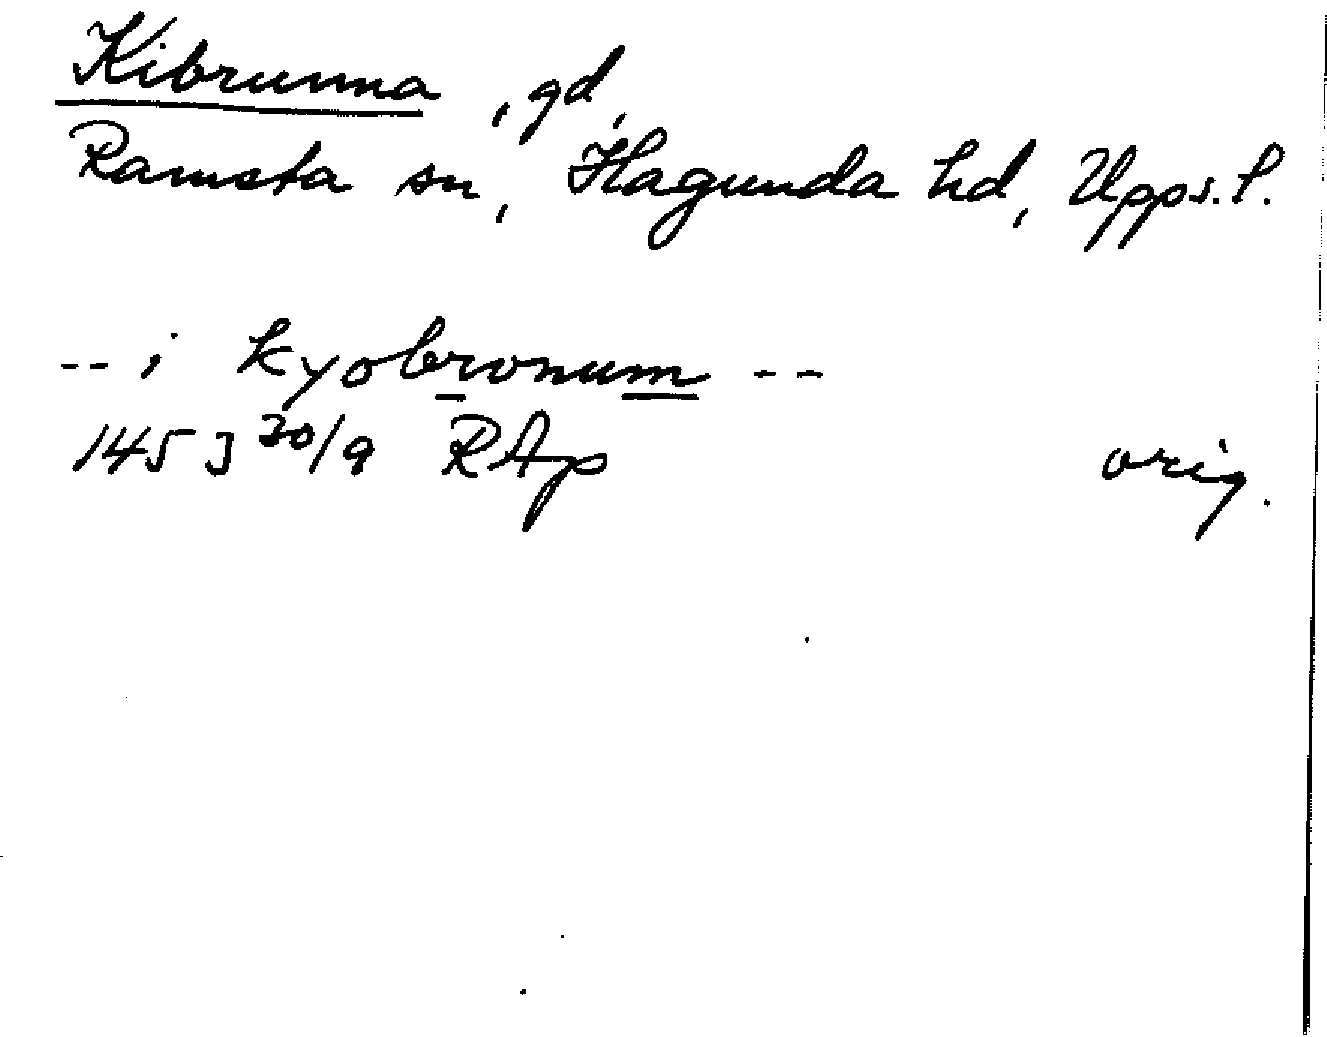 Kibrunna, gd,
Ramsta sn, Hagunda hd, Upps. l.
-- i kyobronum --
1453 20/9 RAp orig.